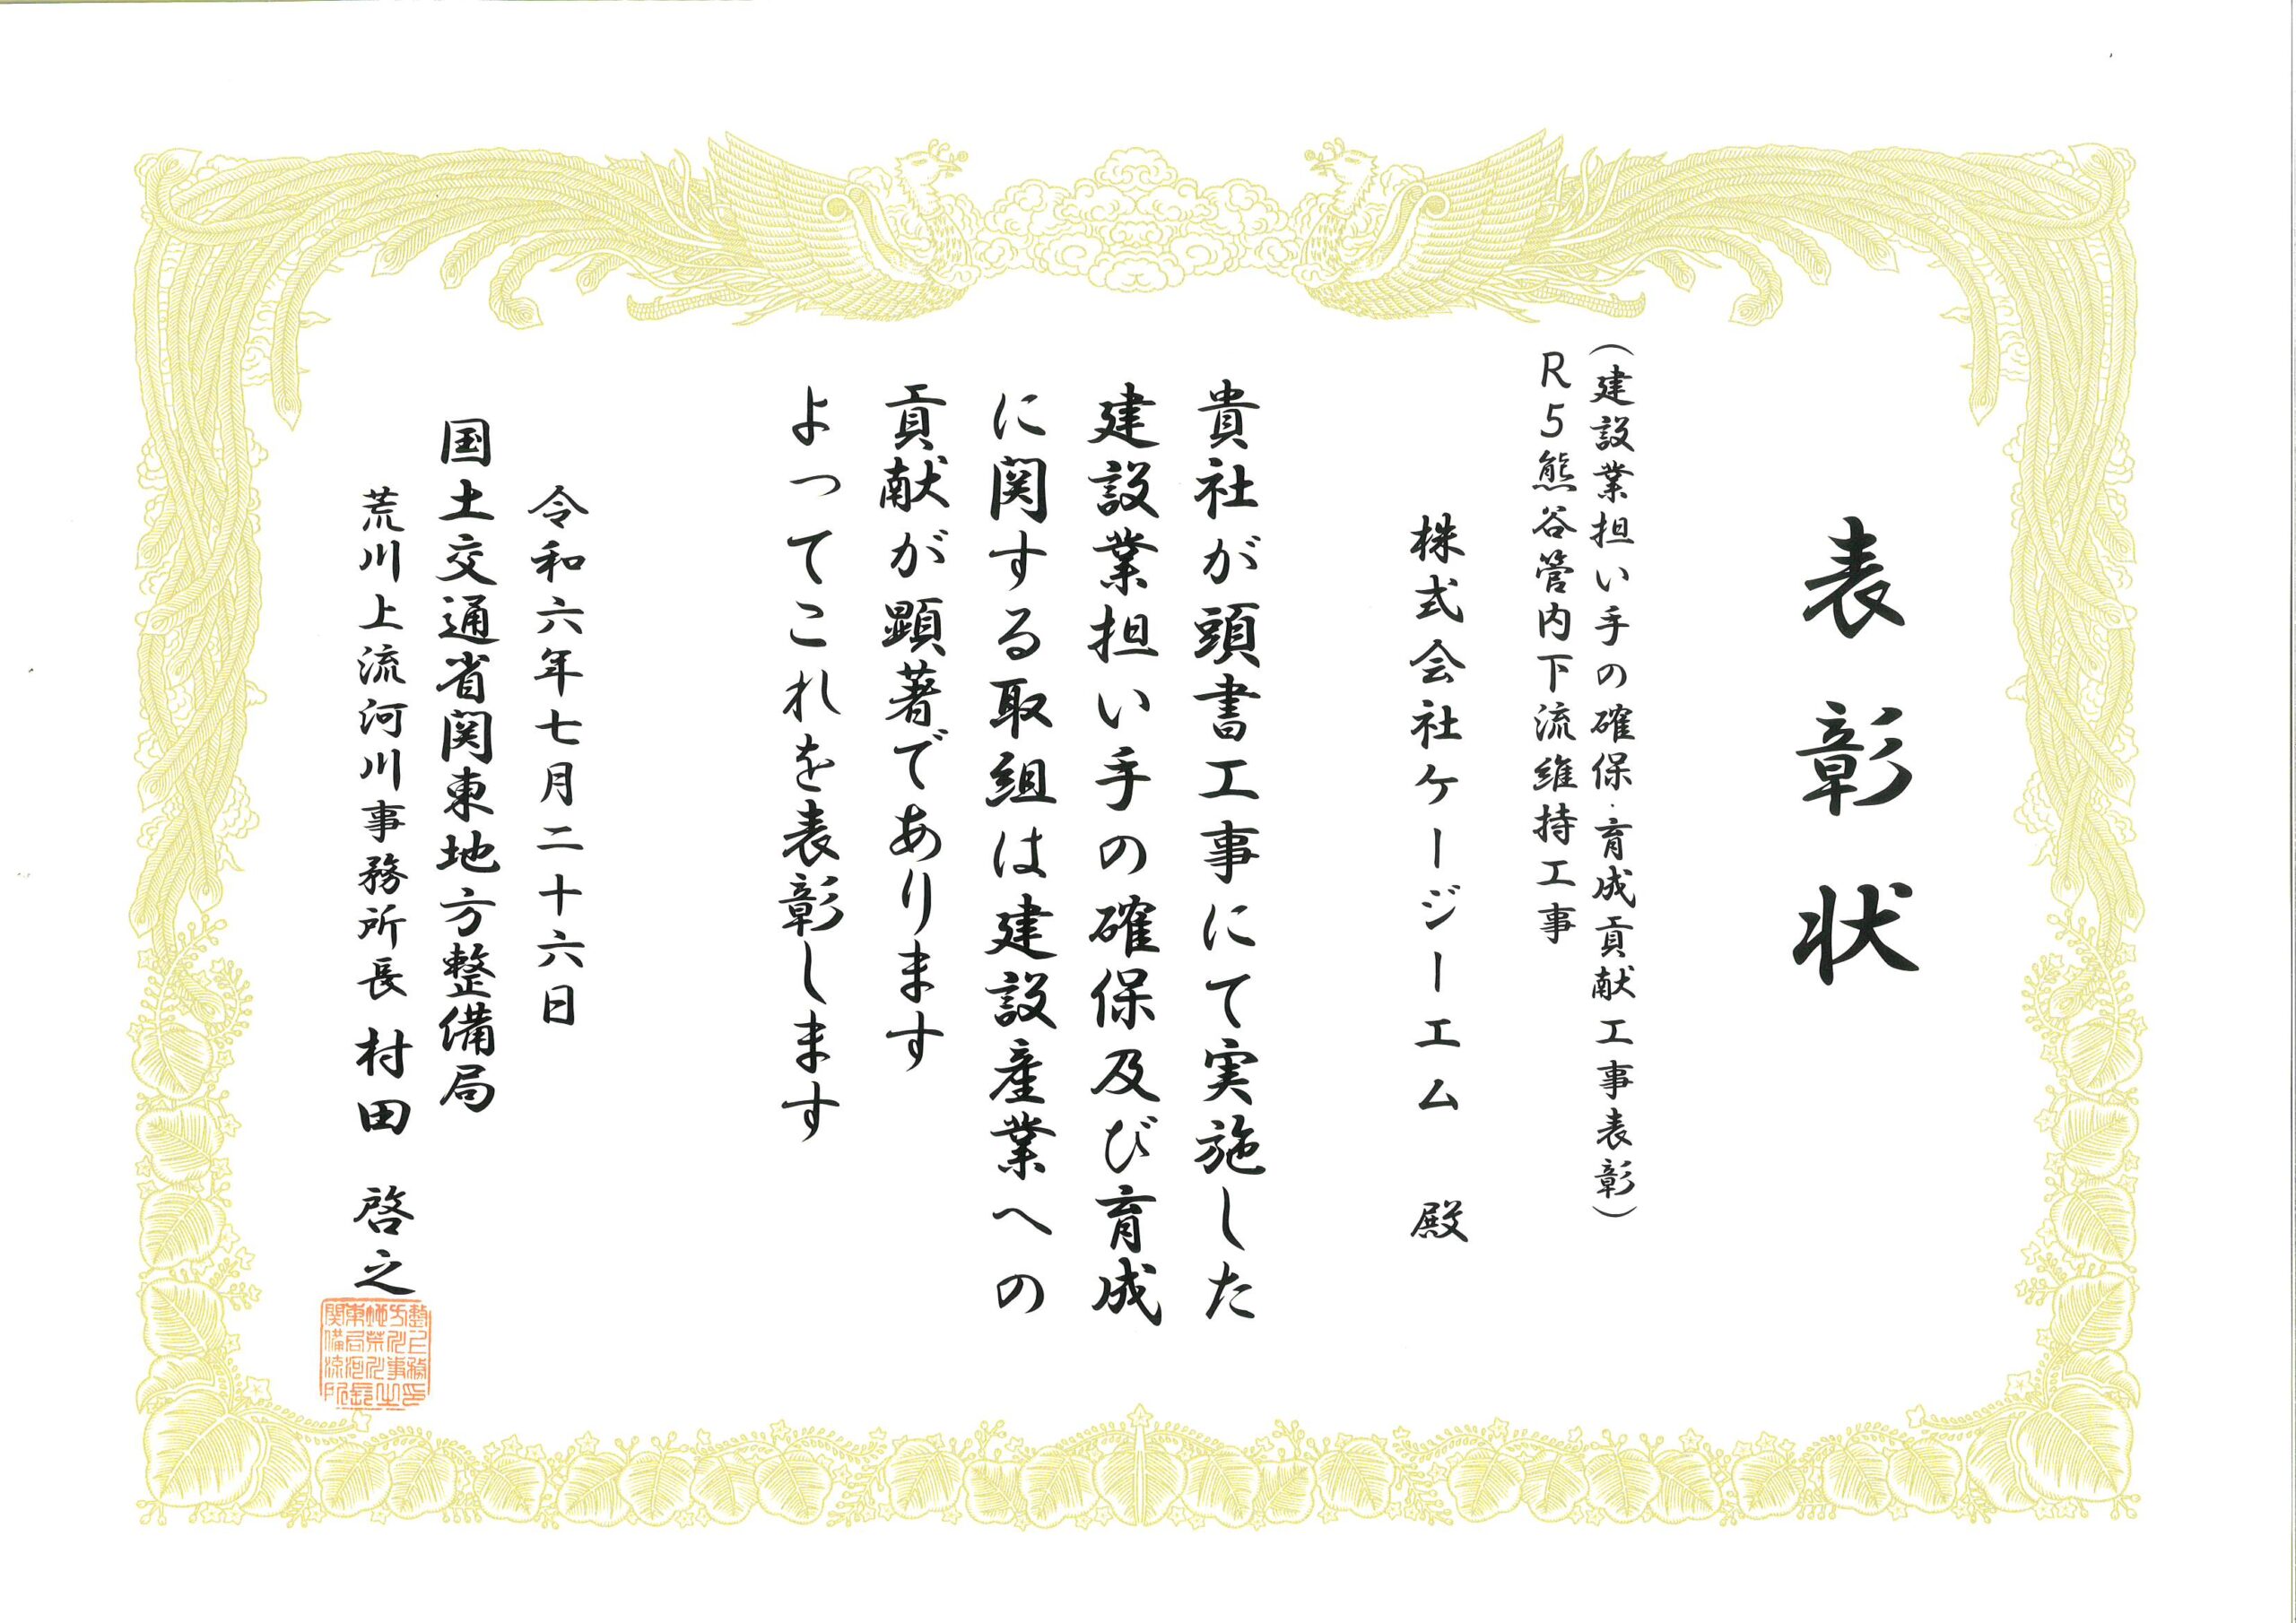 表彰状
（建設業担い手の確保・育成貢献工事表彰）
R5熊谷管内下流維持工事
株式会社ケージーエム　殿
貴社が頭書工事にて実施した
建設業担い手の確保及び育成
に関する取組は建設産業への
貢献が顕著であります
よってこれを表彰します
令和六年七月二十六日
国土交通省関東地方整備局
荒川上流河川事務所長 村田　啓之